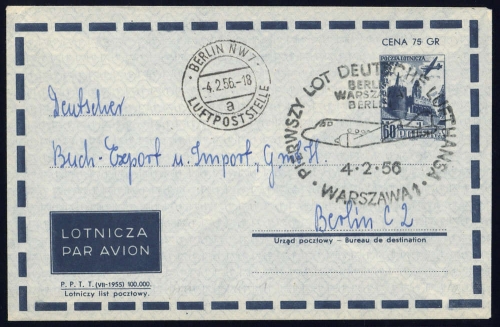 CENA 75 GR
BERLIN NW7
-4.2.56.-18
a
LUFTPOSTSTELLE
POCZTA LOTNICZA
60 gr
PIERWSZY LOT DEUTSCHE LUFTHANSA
BERLIN
WARSZAWA
BERLIN
4-2-56
WARSZAWA 1
Deutscher
Buch-Export und Import, GmbH.
Berlin C 2
LOTNICZA
PAR AVION
Urząd pocztowy - Bureau de destination
P. P. T. T. (VII-1955) 100.000.
Lotniczy list pocztowy.